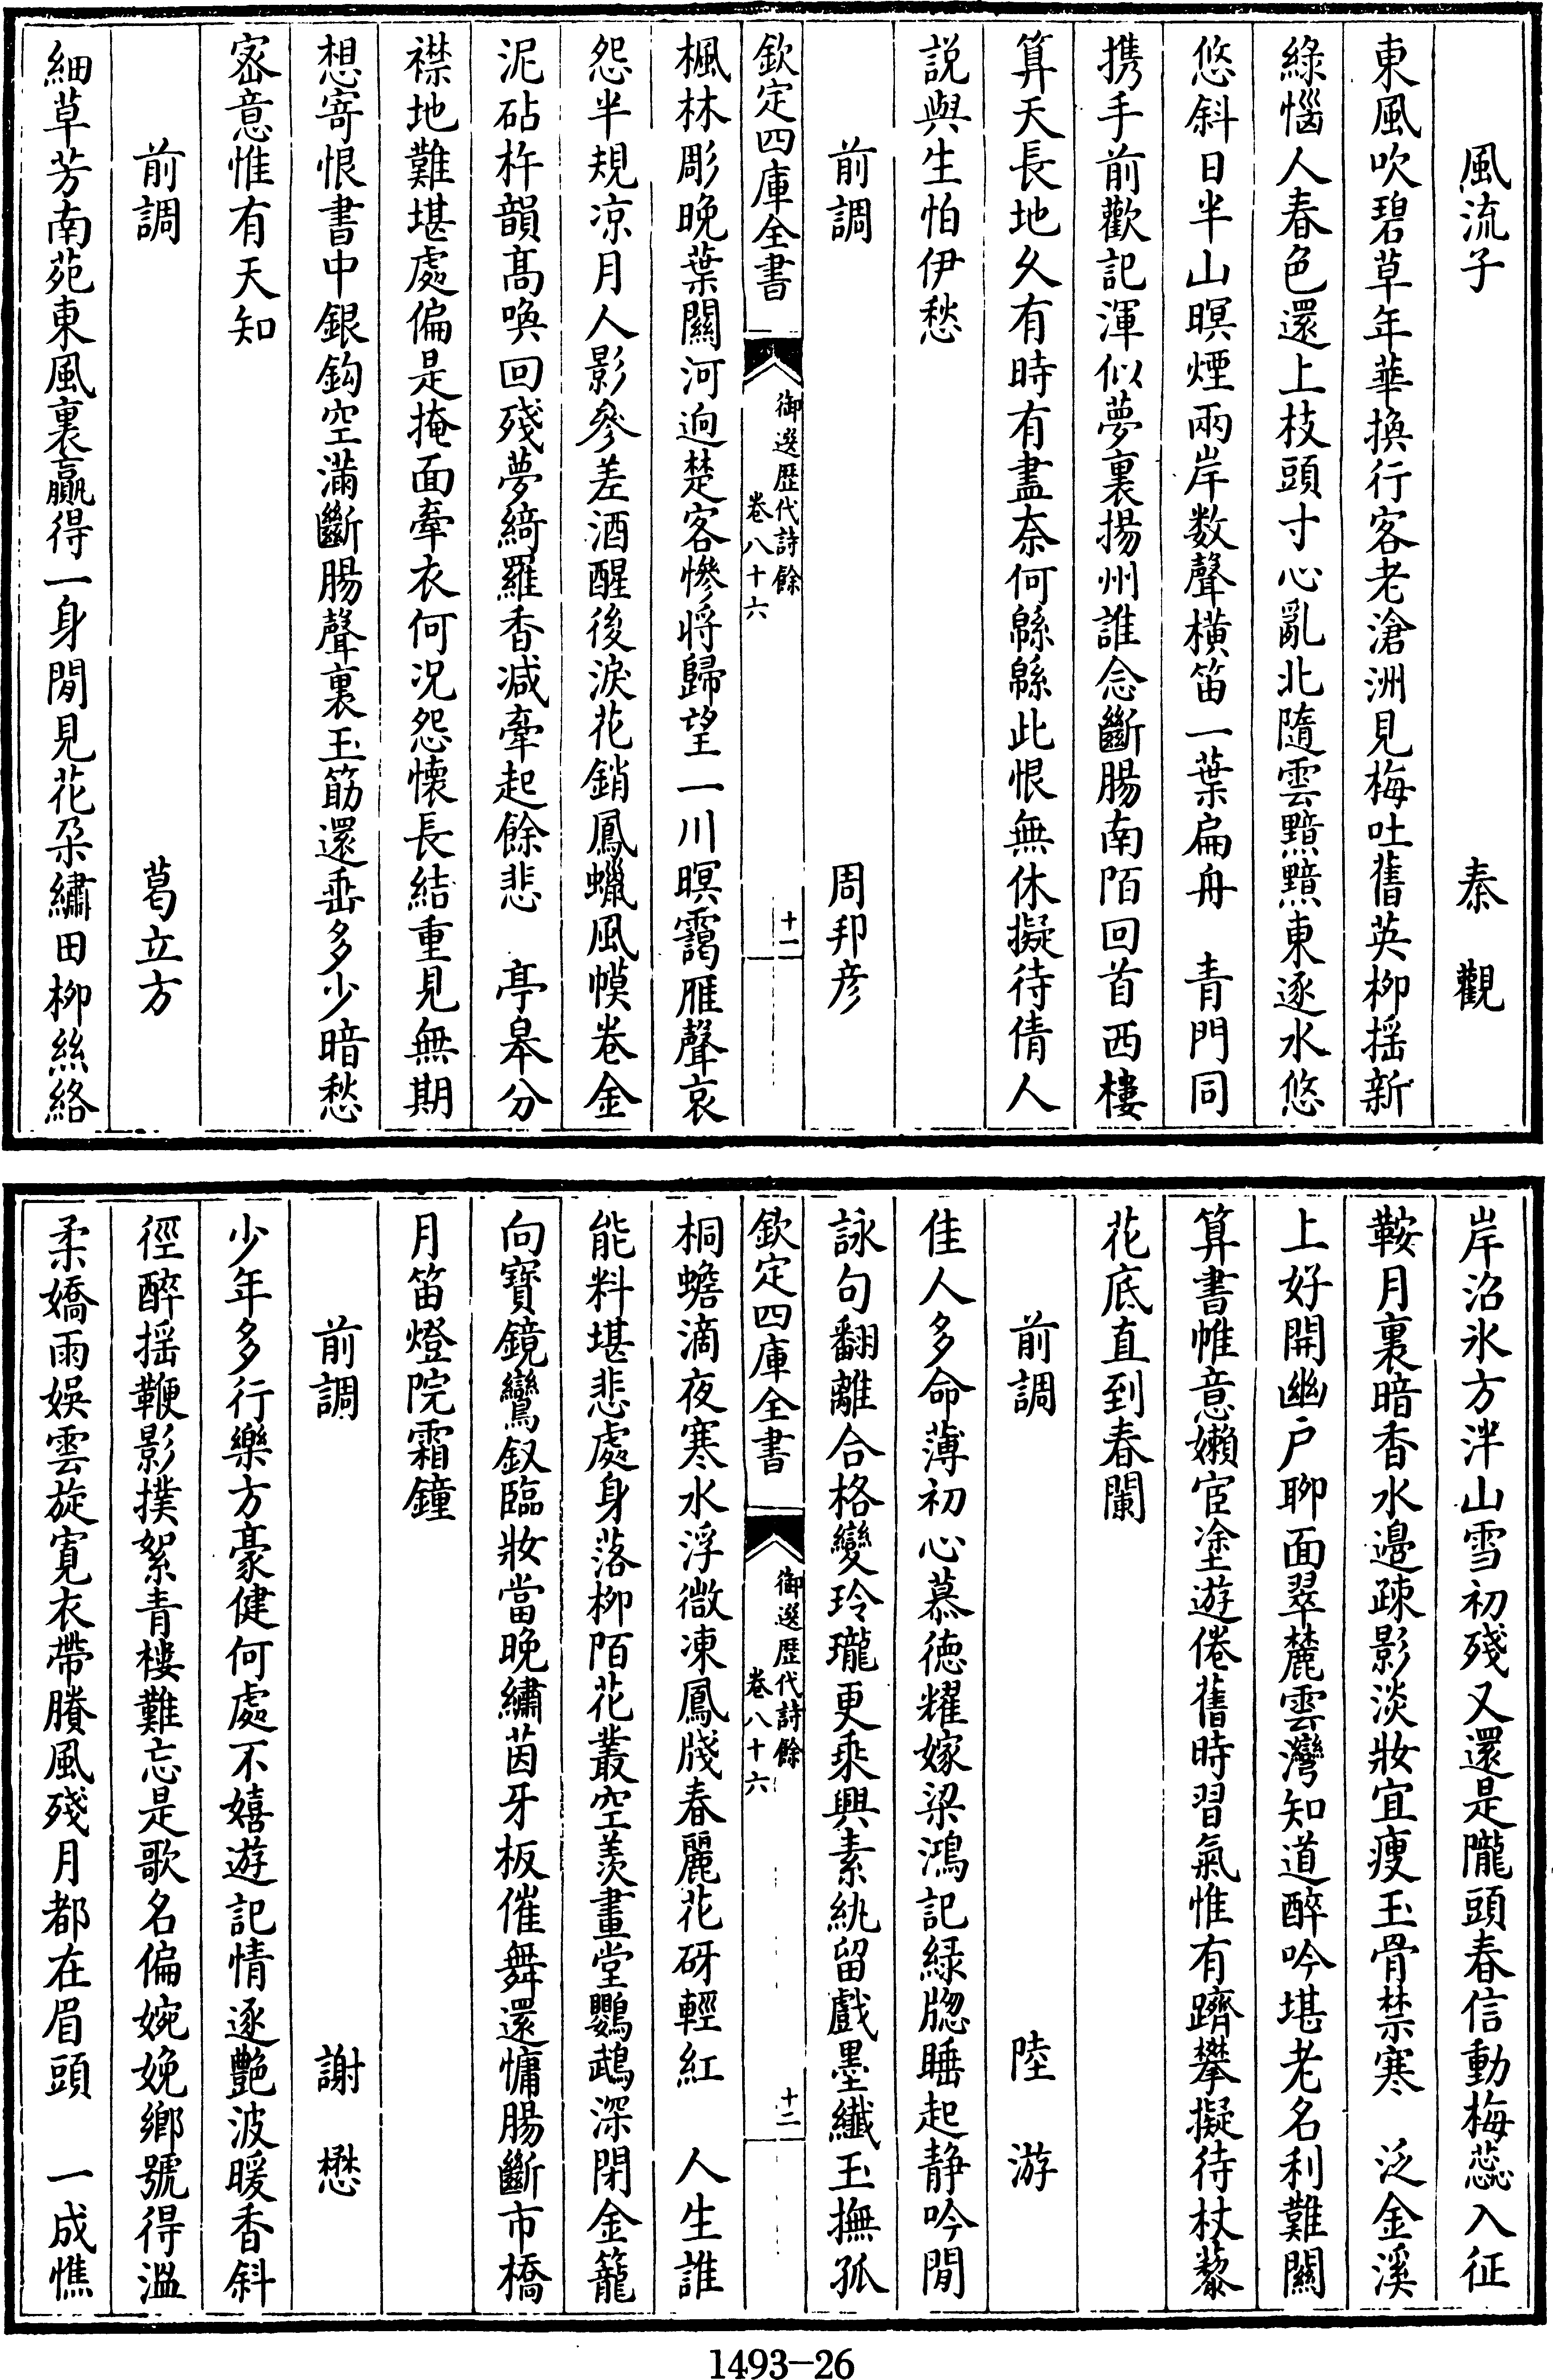 風流子　秦觀
東風吹碧草年華換行客老滄洲見梅吐舊英柳揺新
綠惱人春色還上枝頭寸心亂北隨雲黯黯東逐水悠
悠斜日半山暝煙兩岸数聲橫笛一葉扁舟　青門同
携手前歡記渾似夢裏揚州誰念斷腸南陌回首西樓
算天長地久有時有盡奈何緜緜此恨無休擬待倩人
説與生怕伊愁
前調　周邦彦
欽定四庫全書　御選歴代詩餘　卷八十六　十一
楓林彫晚葉關河逈楚客慘將歸望一川暝靄雁聲哀
怨半規凉月人影參差酒醒後淚花銷鳳蠟風幙卷金
泥砧杵韻髙喚回殘夢綺羅香减牽起餘悲　亭皋分
襟地難堪處偏是掩面牽衣何况怨懐長結重見無期
想寄恨書中銀鈎空滿斷腸聲裏玉筯還垂多少暗愁
宻意惟有天知
前調　葛立方
細草芳南苑東風裏贏得一身閒見花朶繡田柳絲絡
岸沼氷方泮山雪初殘又還是隴頭春信動梅蕊入征
鞍月裏暗香水邊疎影淡妝宜瘦玉骨禁寒　泛金溪
上好開幽户聊面翠麓雲灣知道醉吟堪老名利難關
算書帷意嬾宦塗遊倦舊時習氣惟有躋攀擬待杖藜
花底直到春闌
前調　陸游
佳人多命薄初心慕徳耀嫁梁鴻記緑牕睡起静吟閒
詠句翻離合格變玲瓏更乘興素紈留戲墨纖玉撫孤
欽定四庫全書　御選歴代詩餘　卷八十六　十二
桐蟾滴夜寒水浮微凍鳳牋春麗花砑輕紅　人生誰
能料堪悲處身落柳陌花叢空羨畫堂鸚鵡深閉金籠
向寶鏡鸞釵臨妝當晚繡茵牙板催舞還慵腸斷市橋
月笛燈院霜鐘
前調　謝懋
少年多行樂方豪健何處不嬉遊記情逐艶波暖香斜
徑醉揺鞭影撲絮青樓難忘是歌名偏婉娩鄉號得溫
柔嬌雨娱雲旋寛衣帶賸風殘月都在眉頭　一成憔
1493-26